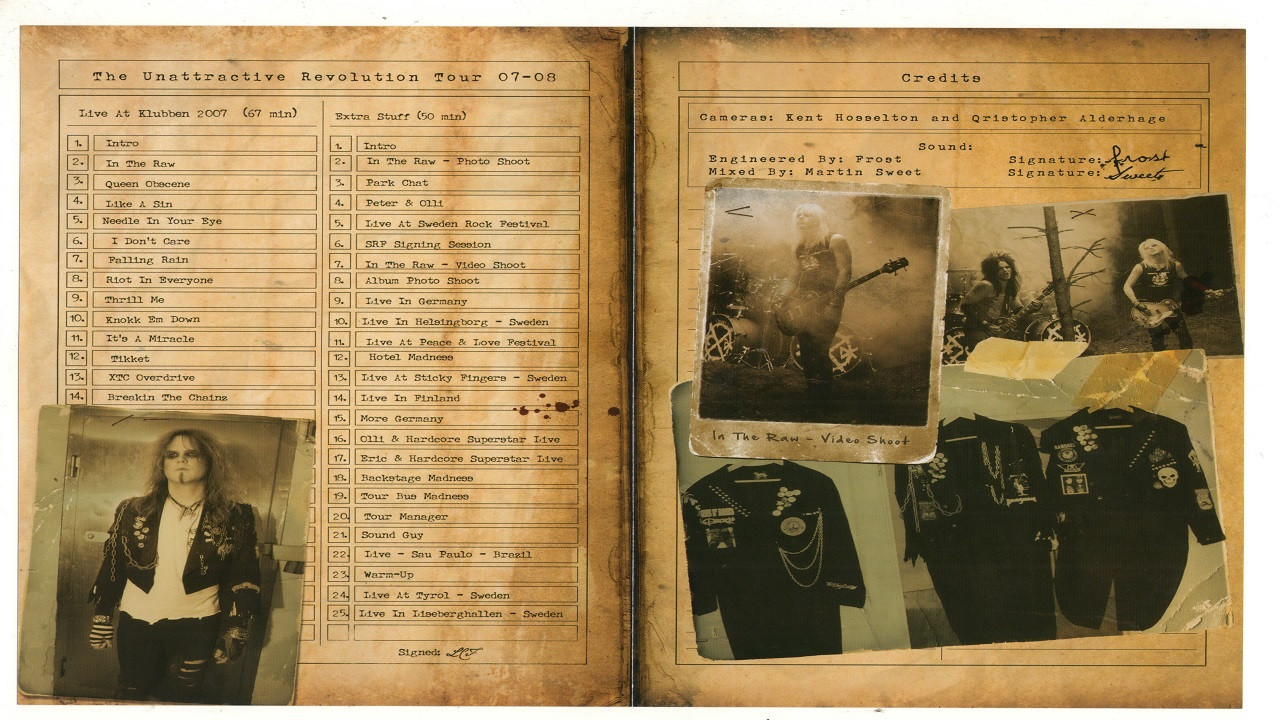 The Unattractive Revolution Tour 07-08
Live At Klubben 2007 (67 min)
1. Intro
2. In The Raw
3. Queen Obscene
4. Like A Sin
5. Needle In Your Eye
6. I Don't Care
7. Falling Rain
8. Riot In Everyone
9. Thrill Me
10. Knokk Em Down
11. It's A Miracle
12. Tikket
13. XTC Overdrive
14. Breakin The Chainz
Extra Stuff (50 min)
1. Intro
2. In The Raw - Photo Shoot
3. Park Chat
4. Peter & Olli
5. Live At Sweden Rock Festival
6. SRF Signing Session
7. In The Raw - Video Shoot
8. Album Photo Shoot
9. Live In Germany
10. Live In Helsingborg - Sweden
11. Live At Peace & Love Festival
12. Hotel Madness
13. Live At Sticky Fingers - Sweden
14. Live In Finland
15. More Germany
16. Olli & Hardcore Superstar Live
17. Eric & Hardcore Superstar Live
18. Backstage Madness
19. Tour Bus Madness
20. Tour Manager
21. Sound Guy
22. Live - Sau Paulo - Brazil
23. Warm-Up
24. Live At Tyrol - Sweden
25. Live In Liseberghallen - Sweden
Signed:
Credits
Cameras: Kent Hosselton and Qristopher Alderhage
Sound:
Engineered By: Frost Signature: Frost
Mixed By: Martin Sweet Signature: Sweet
In The Raw - Video Shoot